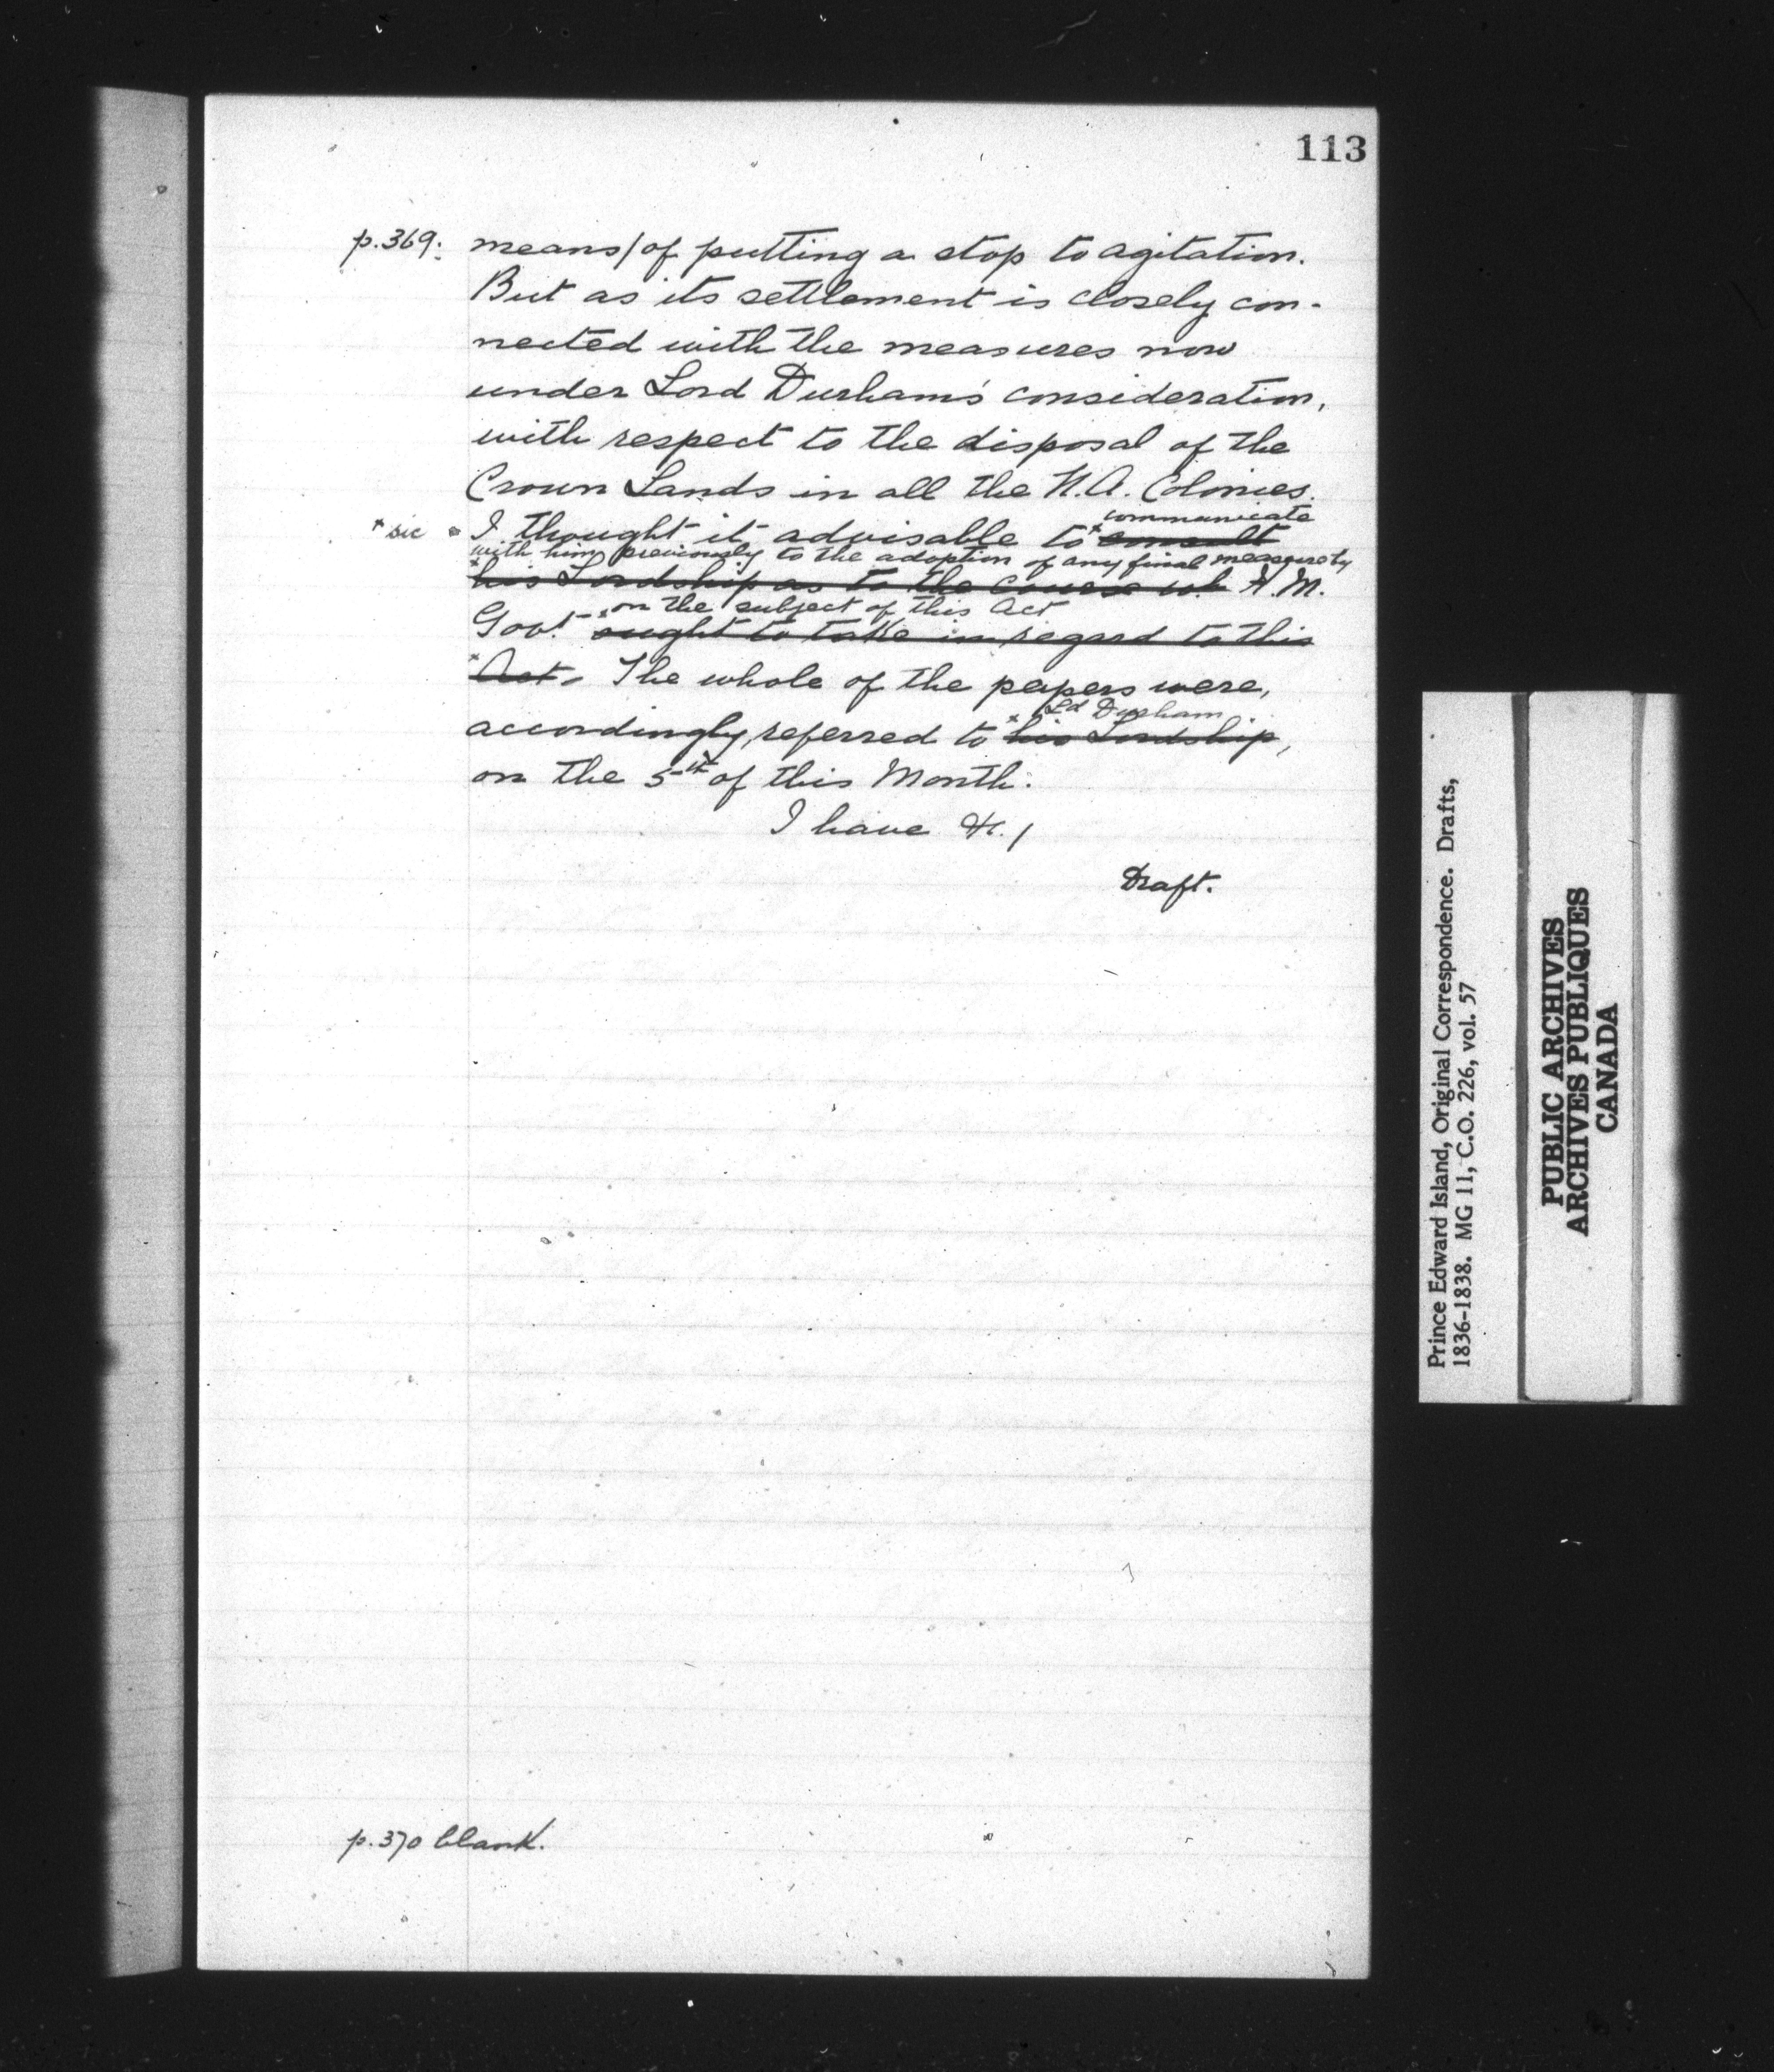 113
p.369. means/of putting a stop to agitation.
But as its settlement is closely con-
nected with the measures now
under Lord Durham's consideration,
with respect to the disposal of the
Crown Lands in all the N.A. Colonies.
communicate
* sic I thought it advisable to * consult
with him previously to the adoption of any final measure by
* his Lordship as to the course wh. H.M.
on the subject of this Act
Govt. * ought to take in regard to this
* Act. The whole of the papers were,
Ld Durham
accordingly, referred to * his Lordship,
on the 5th of this Month.
I have &c./
Draft.
p.370 blank.
Prince Edward Island, Original Correspondence. Drafts,
1836-1838. MG 11, C.O. 226, vol. 57
PUBLIC ARCHIVES
ARCHIVES PUBLIQUES
CANADA